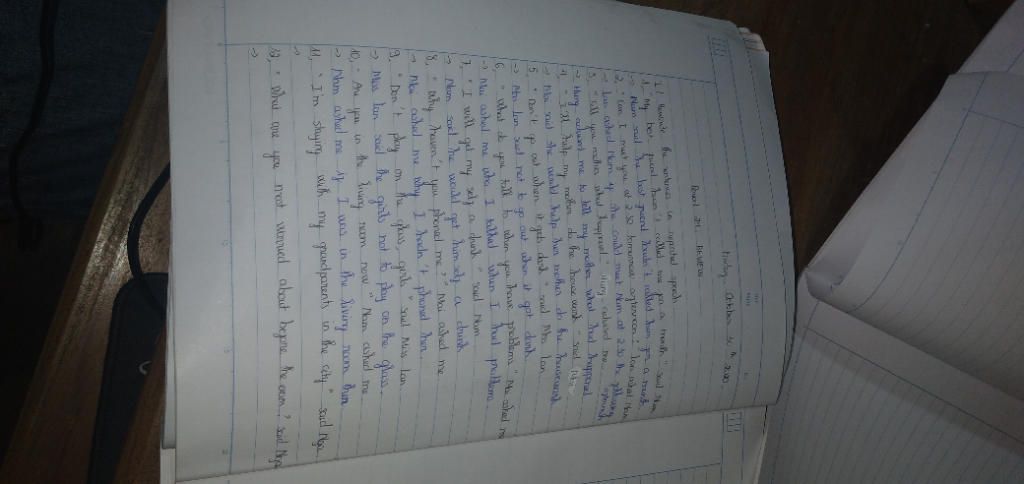 Friday, October 30th, 2020
Period 24: REVIEW
I. Rewrite the sentences in reported speech
1, " My best friend hasn't called me for a month " said Nam
→ Nam said his best friend hadn't called him for a month
2, " Can I meet you at 2.30 tomorrow afternoon? " Lan asked Nam
→ Lan asked Nam if she could meet Nam at 2.30 the following
3, " Tell your mother what happened " Hung advised me
→ Hung advised me to tell my mother what had happened
4, " I'll help my mother do the housework " said Mai
→ Mai said she would help her mother do the housework
5, " Don't go out when it gets dark " said Mrs Lan
→ Mrs Lan said not to go out when it got dark
6, " What do you talk to when you have problems " Mai asked me
→ Mai asked me who I talked when I had problems
7, " I will get my self a drink " said Nam
→ Nam said he would get himself a drink
8, " Why haven't you phoned me? " Mai asked me
→ Mai asked me why I hadn't phoned her
9, " Don't play on the glass, girls " said Miss Lan
→ Miss Lan said the girls not to play on the glass.
10, " Are you in the living room now " Nam asked me
→ Nam asked me if I was in the living room then
11, " I'm staying with my grandparents in the city " said Nga
→
12, " What are you most worried about before the exam? " said Nga
→